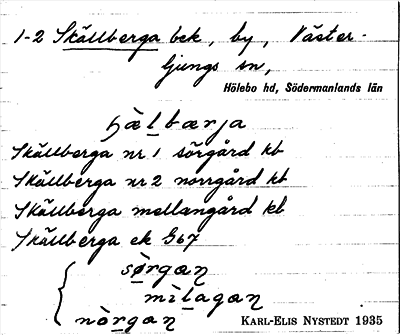 1-2 Skällberga bek, by, Väster-
ljungs sn,
Hölebo hd, Södermanlands län
hæ̀lbærja
Skällberga nr 1 sörgård kb
Skällberga nr 2 norrgård kb
Skällberga mellangård kb
Skällberga ek G67
sö̀rgaɳ
mìlagaɳ
nòrgaɳ
KARL-ELIS NYSTEDT 1935